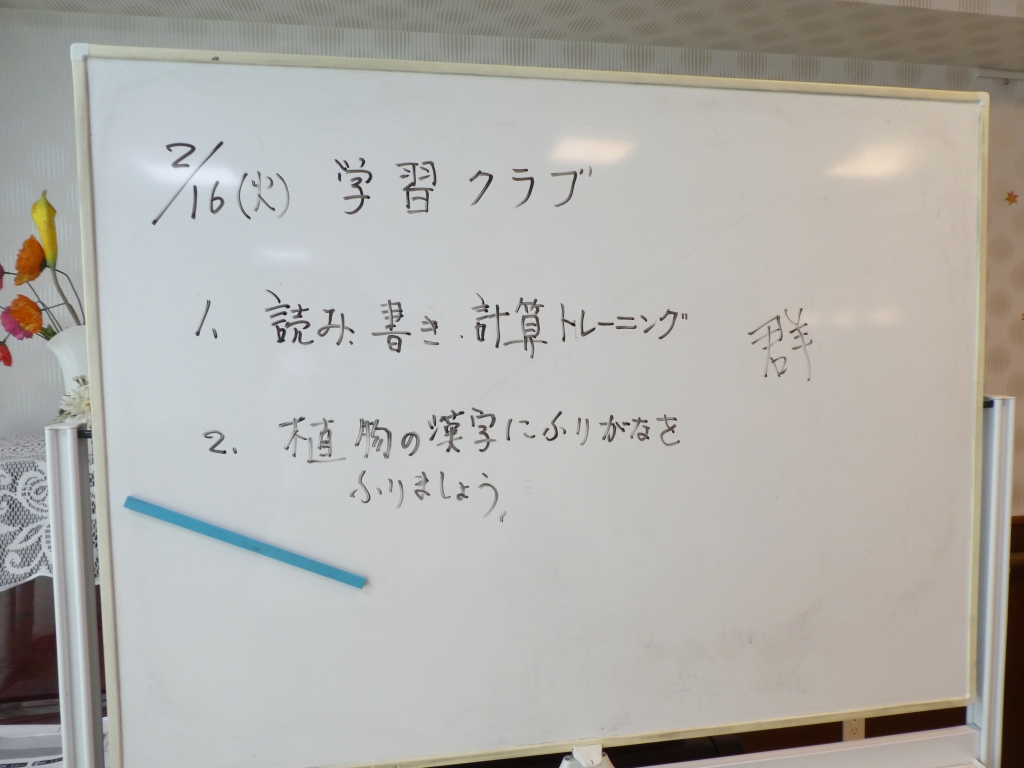 2/16(火) 学習クラブ
1. 読み、書き、計算トレーニング
群
2. 植物の漢字にふりがなを
ふりましょう。